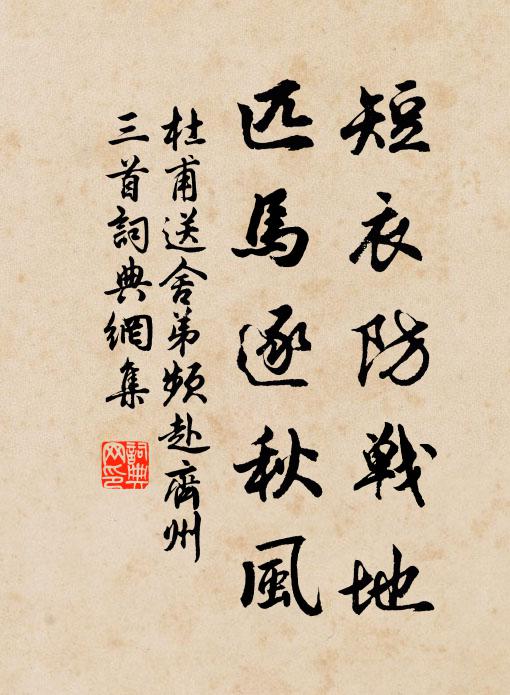 短衣防戰地
匹馬逐秋風
杜甫送舍弟頻赴齊州
三首詞典網集
詞典網印